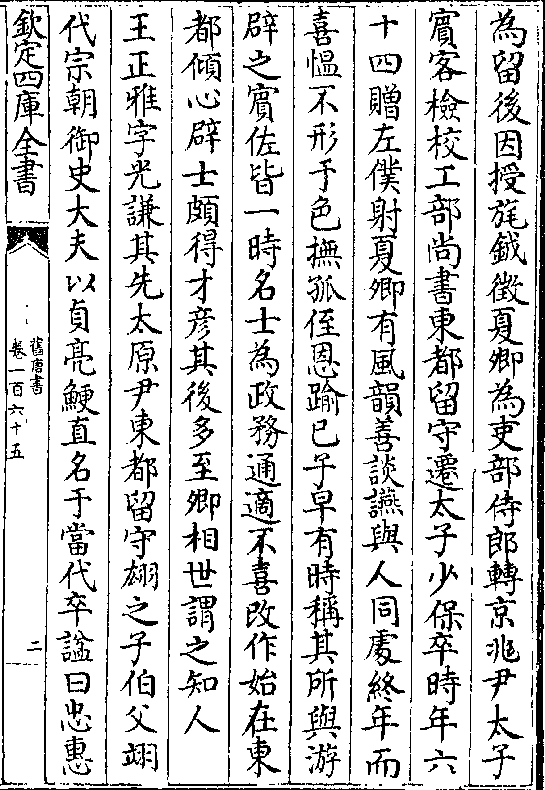 為留後因授旄鉞徴夏卿為吏部侍郎轉京兆尹太子
賔客檢校工部尚書東都留守遷太子少保卒時年六
十四贈左僕射夏卿有風韻善談讌與人同處終年而
喜愠不形于色撫孤侄恩踰己子早有時稱其所與游
辟之賔佐皆一時名士為政務通適不喜改作始在東
都傾心辟士頗得才彦其後多至卿相世謂之知人
王正雅字光謙其先太原尹東都留守翃之子伯父翊
代宗朝御史大夫以貞亮鯁直名于當代卒諡曰忠惠
欽定四庫全書
舊唐書
卷一百六十五
二